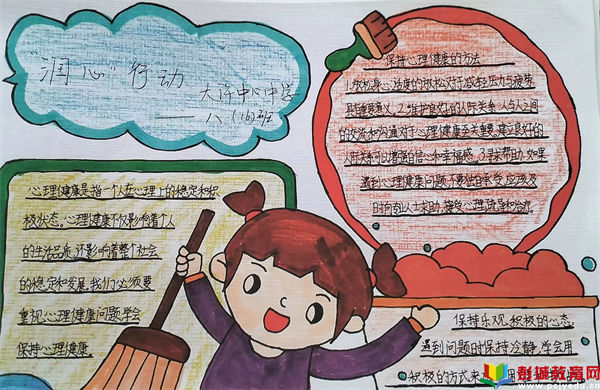 "润心"行动
大许中心中学
——八(16)班
心理健康是指一个人在心理上的稳定和积
极状态。心理健康不仅影响着个人
的生活品质,还影响着整个社会
的稳定和发展。我们必须要
重视心理健康问题,学会
保持心理健康。
保持心理健康的方法
1.放松身心,适度的放松对于减轻压力与疲劳
具有重要意义。2.维护良好的人际关系,人与人之间
的交流和沟通对于心理健康至关重要,建立良好的
人际关系可以增强自信心和幸福感。3.寻求帮助,如果
遇到心理健康问题,不要独自承受,应该及
时向别人求助,接受心理疏导和治疗。
保持乐观、积极的心态,
遇到问题时保持冷静,学会用
积极的方式来
彭城教育网
www.pcjyedu.cn